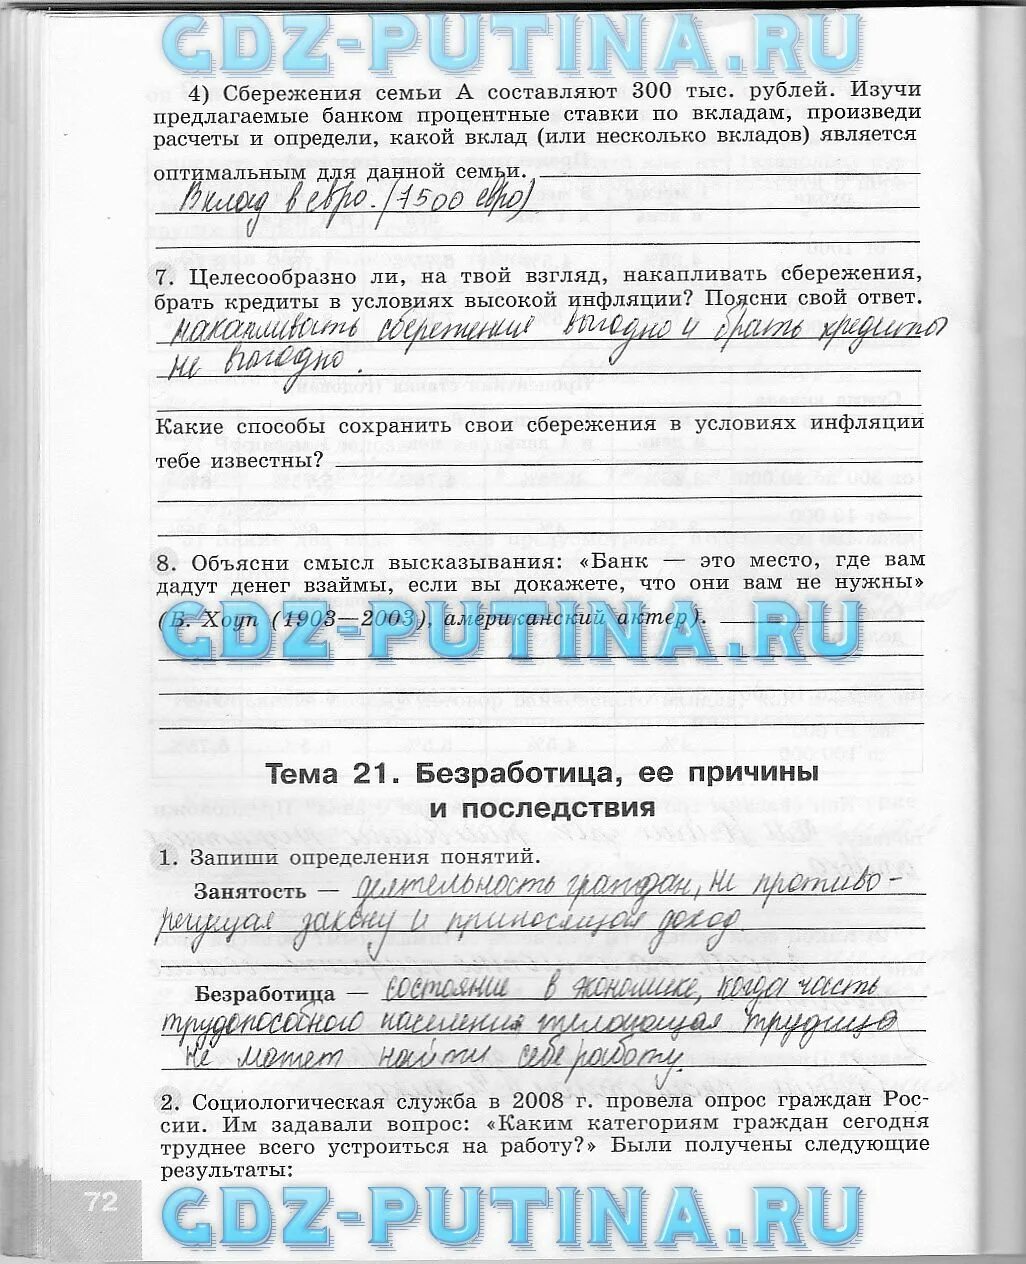 GDZ-PUTINA.RU
4) Сбережения семьи А составляют 300 тыс. рублей. Изучи
предлагаемые банком процентные ставки по вкладам, произведи
расчеты и определи, какой вклад (или несколько вкладов) является
оптимальным для данной семьи.
Вклад в евро. (7500 евро)
7. Целесообразно ли, на твой взгляд, накапливать сбережения,
брать кредиты в условиях высокой инфляции? Поясни свой ответ.
накапливать сбережения выгодно и брать кредиты
не выгодно.
Какие способы сохранить свои сбережения в условиях инфляции
тебе известны?
8. Объясни смысл высказывания: «Банк — это место, где вам
дадут денег взаймы, если вы докажете, что они вам не нужны»
(Б. Хоуп (1903—2003), американский актер).
GDZ-PUTINA.RU
Тема 21. Безработица, ее причины
и последствия
1. Запиши определения понятий.
Занятость — деятельность граждан, не противо-
речущая закону и приносящая доход.
Безработица — состояние в экономике, когда часть
трудопособного населения желающая трудица
не может найти себе работу.
2. Социологическая служба в 2008 г. провела опрос граждан Рос-
сии. Им задавали вопрос: «Каким категориям граждан сегодня
труднее всего устроиться на работу?» Были получены следующие
результаты:
72
GDZ-PUTINA.RU